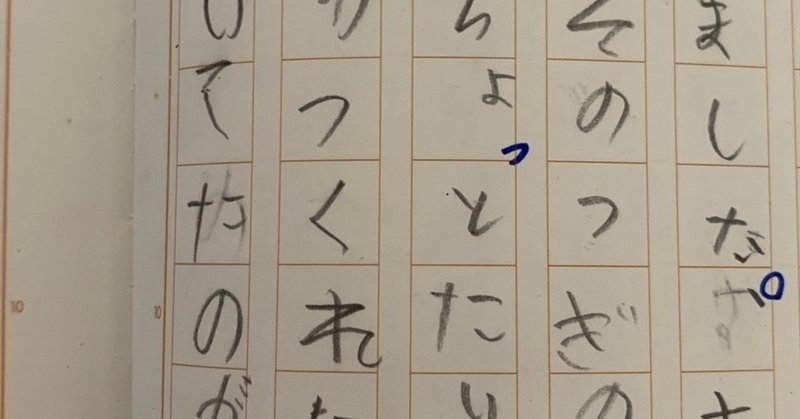 ましだ。
そのつぎの
ちょっとた
つくれた
てたのが
10
10